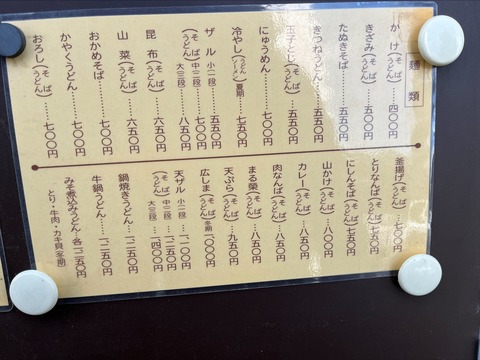 麺類
かけ(そば うどん)‥‥四〇〇円
きざみ(そば うどん)‥‥五〇〇円
たぬきそば‥‥五五〇円
きつねうどん‥‥五五〇円
玉子とじ(そば うどん)‥‥五五〇円
にゅうめん‥‥七〇〇円
冷やし(うどん ソーメン)夏期‥‥七五〇円
ザル(そば うどん)小一段‥‥五五〇円
中二段‥‥七〇〇円
大三段‥‥八五〇円
昆布(そば うどん)‥‥六五〇円
山菜(そば うどん)‥‥六五〇円
おかめそば‥‥七〇〇円
かやくうどん‥‥七〇〇円
おろし(そば うどん)‥‥七〇〇円
釜揚げ(そば うどん)‥七〇〇円
とりなんば(そば うどん)七五〇円
にしんそば‥‥七五〇円
山かけ(そば うどん)‥八〇〇円
カレー(そば うどん)‥八五〇円
肉なんば(そば うどん)‥八五〇円
まる榮(そば うどん)‥八五〇円
天ぷら(そば うどん)‥九五〇円
広しま(そば うどん)冬期一、〇〇〇円
天ザル(そば うどん)小一段‥一、一〇〇円
中二段‥一、二五〇円
大三段‥一、四〇〇円
鍋焼きうどん‥‥一、二五〇円
牛鍋うどん‥‥一、二五〇円
みそ煮込みうどん・各一、二五〇円
とり・牛肉・カキ貝(冬期)